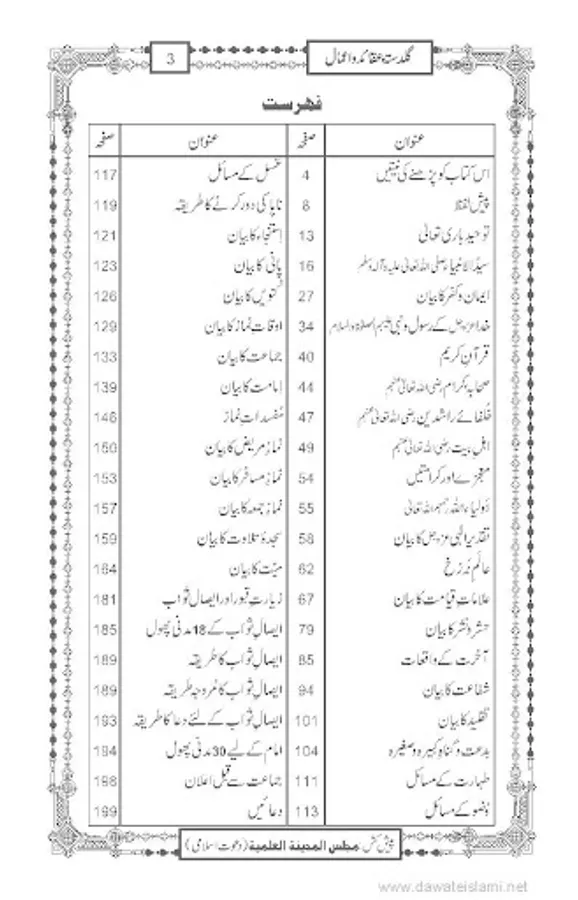 گلدستہ عقائد و اعمال 3
فہرست
عنوان صفحہ عنوان صفحہ
اس کتاب کو پڑھنے کی نیتیں 4 غسل کے مسائل 117
پیش لفظ 8 ناپاکی دور کرنے کا طریقہ 119
توحید باری تعالیٰ 13 اِستنجاء کا بیان 121
سیدُ الانبیاء صلی اللہ تعالیٰ علیہ وآلہ وسلم 16 پانی کا بیان 123
ایمان و کفر کا بیان 27 کنویں کا بیان 126
خدا عزوجل کے رسول و نبی علیہم الصلوٰۃ والسلام 34 اوقاتِ نماز کا بیان 129
قرآنِ کریم 40 جماعت کا بیان 133
صحابۂ کرام رضی اللہ تعالیٰ عنہم 44 اِمامت کا بیان 139
خُلفائے راشدین رضی اللہ تعالیٰ عنہم 47 مُفسداتِ نماز 146
اہلِ بیت رضی اللہ تعالیٰ عنہم 49 نمازِ مریض کا بیان 150
معجزے اور کرامتیں 54 نمازِ مسافر کا بیان 153
اَولیاء اللہ رحمہم اللہ تعالیٰ 55 نمازِ جمعہ کا بیان 157
تقدیرِ الٰہی عزوجل کا بیان 58 سجدۂ تلاوت کا بیان 159
عالَمِ بَرزخ 62 میّت کا بیان 164
علاماتِ قیامت کا بیان 67 زیارتِ قبور اور ایصالِ ثواب 181
حشر و نشر کا بیان 79 ایصالِ ثواب کے 18 مدنی پھول 185
آخرت کے واقعات 85 ایصالِ ثواب کا طریقہ 189
شفاعت کا بیان 94 ایصالِ ثواب کا مُروجہ طریقہ 189
تقلید کا بیان 101 ایصالِ ثواب کے لئے دعا کا طریقہ 193
بدعت و گناہِ کبیرہ و صغیرہ 104 امام کے لیے 30 مدنی پھول 194
طہارت کے مسائل 111 جماعت سے قبل اعلان 198
وضو کے مسائل 113 دعائیں 199
پیش کش: مجلس المدینۃ العلمیۃ (دعوتِ اسلامی)
www.dawateislami.net